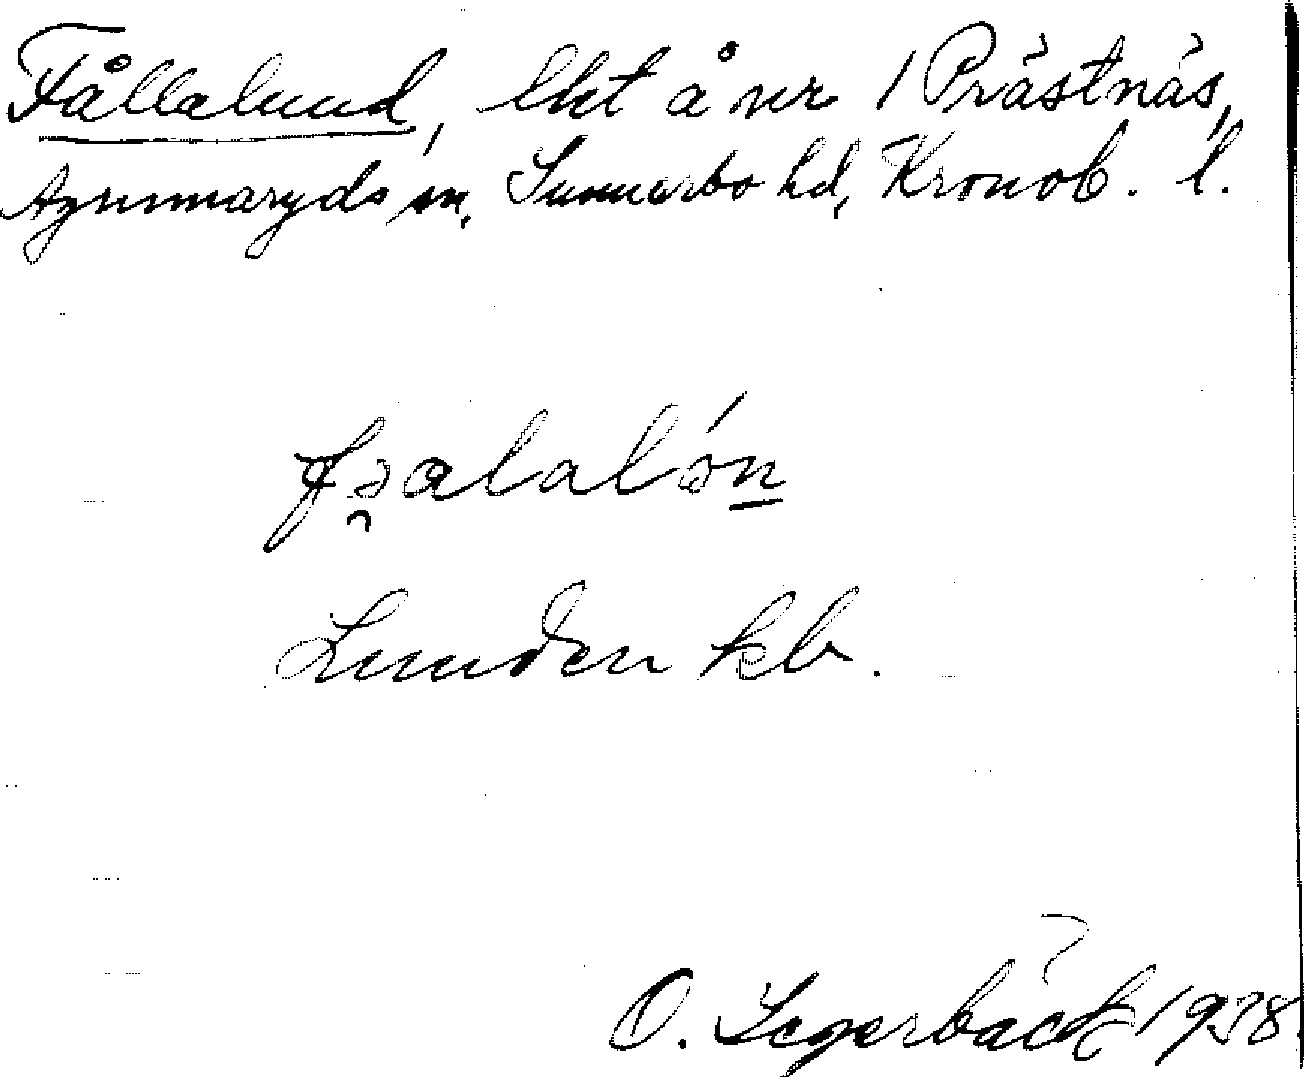 Fållalund, lht å nr 1 Prästnäs,
Agunnaryds sn, Sunnerbo hd, Kronob. l.
Lunden kb.
O. Segerbäck 1938.